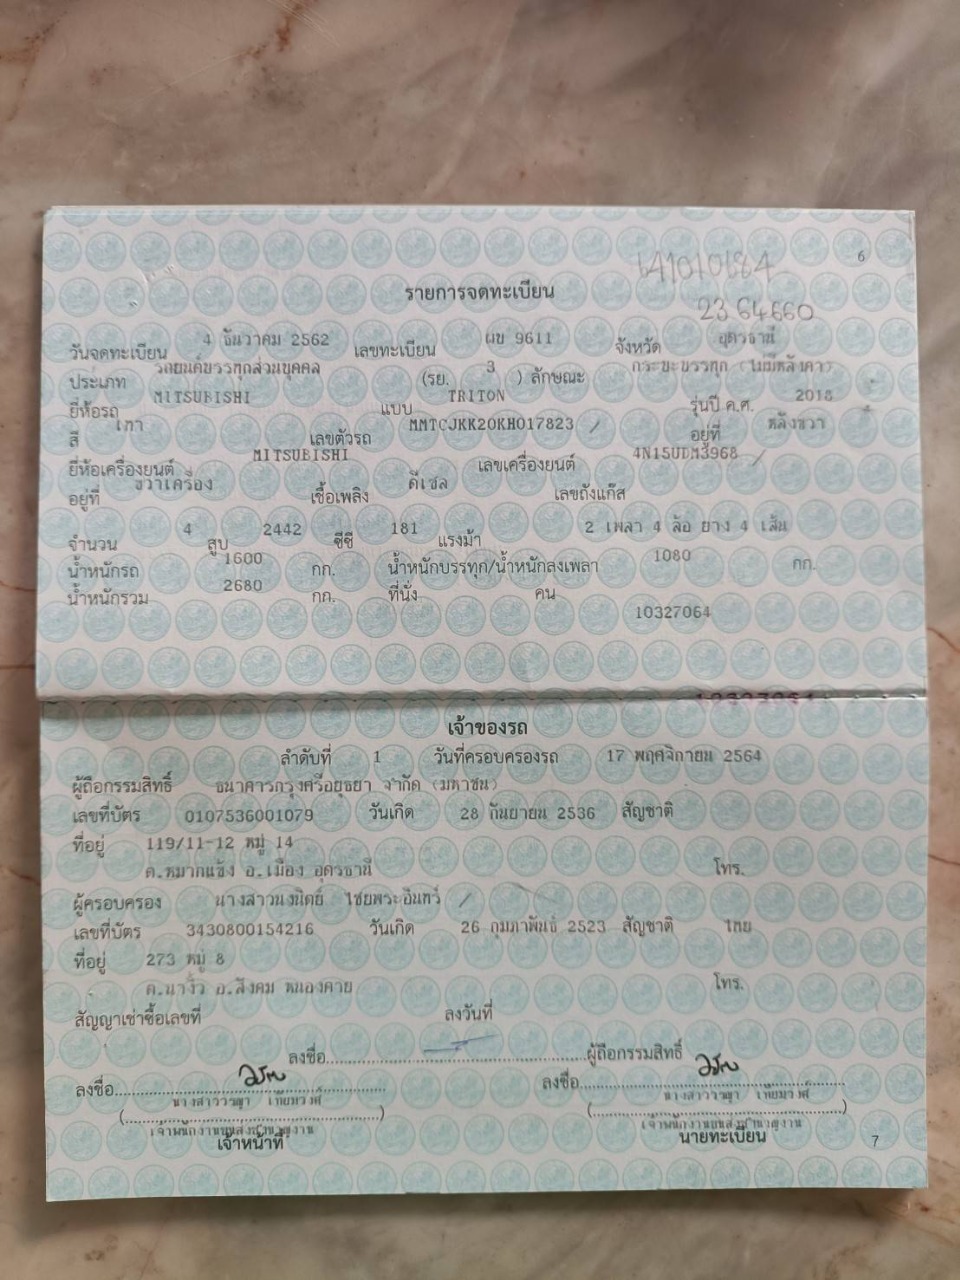 6
641010184
รายการจดทะเบียน
2364660
วันจดทะเบียน 4 ธันวาคม 2562 เลขทะเบียน ผข 9611 จังหวัด อุดรธานี
ประเภท รถยนต์บรรทุกส่วนบุคคล (รย. 3 ) ลักษณะ กระบะบรรทุก (ไม่มีหลังคา)
ยี่ห้อรถ MITSUBISHI แบบ TRITON รุ่นปี ค.ศ. 2018
สี เทา เลขตัวรถ MMTCJKK20KH017823 / อยู่ที่ หลังขวา
ยี่ห้อเครื่องยนต์ MITSUBISHI เลขเครื่องยนต์ 4N15UDM3968 /
อยู่ที่ ขวาเครื่อง เชื้อเพลิง ดีเซล เลขถังแก๊ส
จำนวน 4 สูบ 2442 ซีซี 181 แรงม้า 2 เพลา 4 ล้อ ยาง 4 เส้น
น้ำหนักรถ 1600 กก. น้ำหนักบรรทุก/น้ำหนักลงเพลา 1080 กก.
น้ำหนักรวม 2680 กก. ที่นั่ง คน
10327064
เจ้าของรถ
ลำดับที่ 1 วันที่ครอบครองรถ 17 พฤศจิกายน 2564
ผู้ถือกรรมสิทธิ์ ธนาคารกรุงศรีอยุธยา จำกัด (มหาชน)
เลขที่บัตร 0107536001079 วันเกิด 28 กันยายน 2536 สัญชาติ
ที่อยู่ 119/11-12 หมู่ 14
ต.หมากแข้ง อ.เมือง อุดรธานี โทร.
ผู้ครอบครอง นางสาวนงนิตย์ ไชยพระอินทร์ /
เลขที่บัตร 3430800154216 วันเกิด 26 กุมภาพันธ์ 2523 สัญชาติ ไทย
ที่อยู่ 273 หมู่ 8
ต.นางิ้ว อ.สังคม หนองคาย โทร.
สัญญาเช่าซื้อเลขที่ ลงวันที่
ลงชื่อ ผู้ถือกรรมสิทธิ์
ลงชื่อ ลงชื่อ
นางสาววรญา เทียมวงศ์ นางสาววรญา เทียมวงศ์
เจ้าพนักงานขนส่งชำนาญงาน เจ้าพนักงานขนส่งชำนาญงาน
เจ้าหน้าที่ นายทะเบียน
7